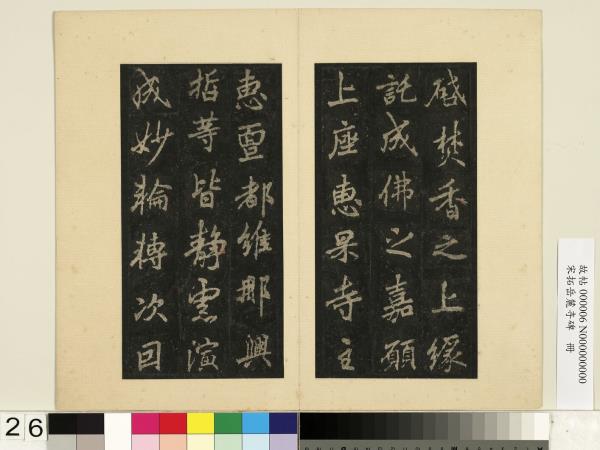 啓焚香之上緣
託成佛之嘉願
上座惠杲寺主
惠亶都維那興
哲等皆靜慮演
成妙輪轉次回
故帖 000006 N000000000
宋拓岳麓寺碑 冊
26